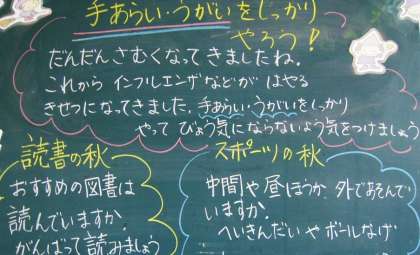 手あらい・うがいをしっかり
やろう!
だんだんさむくなってきましたね。
これから インフルエンザなどが はやる
きせつになってきました。手あらい・うがいをしっかり
やって びょう気にならないよう気をつけましょう
読書の秋
おすすめの図書は
読んでいますか。
がんばって読みましょう
スポーツの秋
中間や昼ほうか、外であそんで
いますか。
へいきんだいや ボールなげ